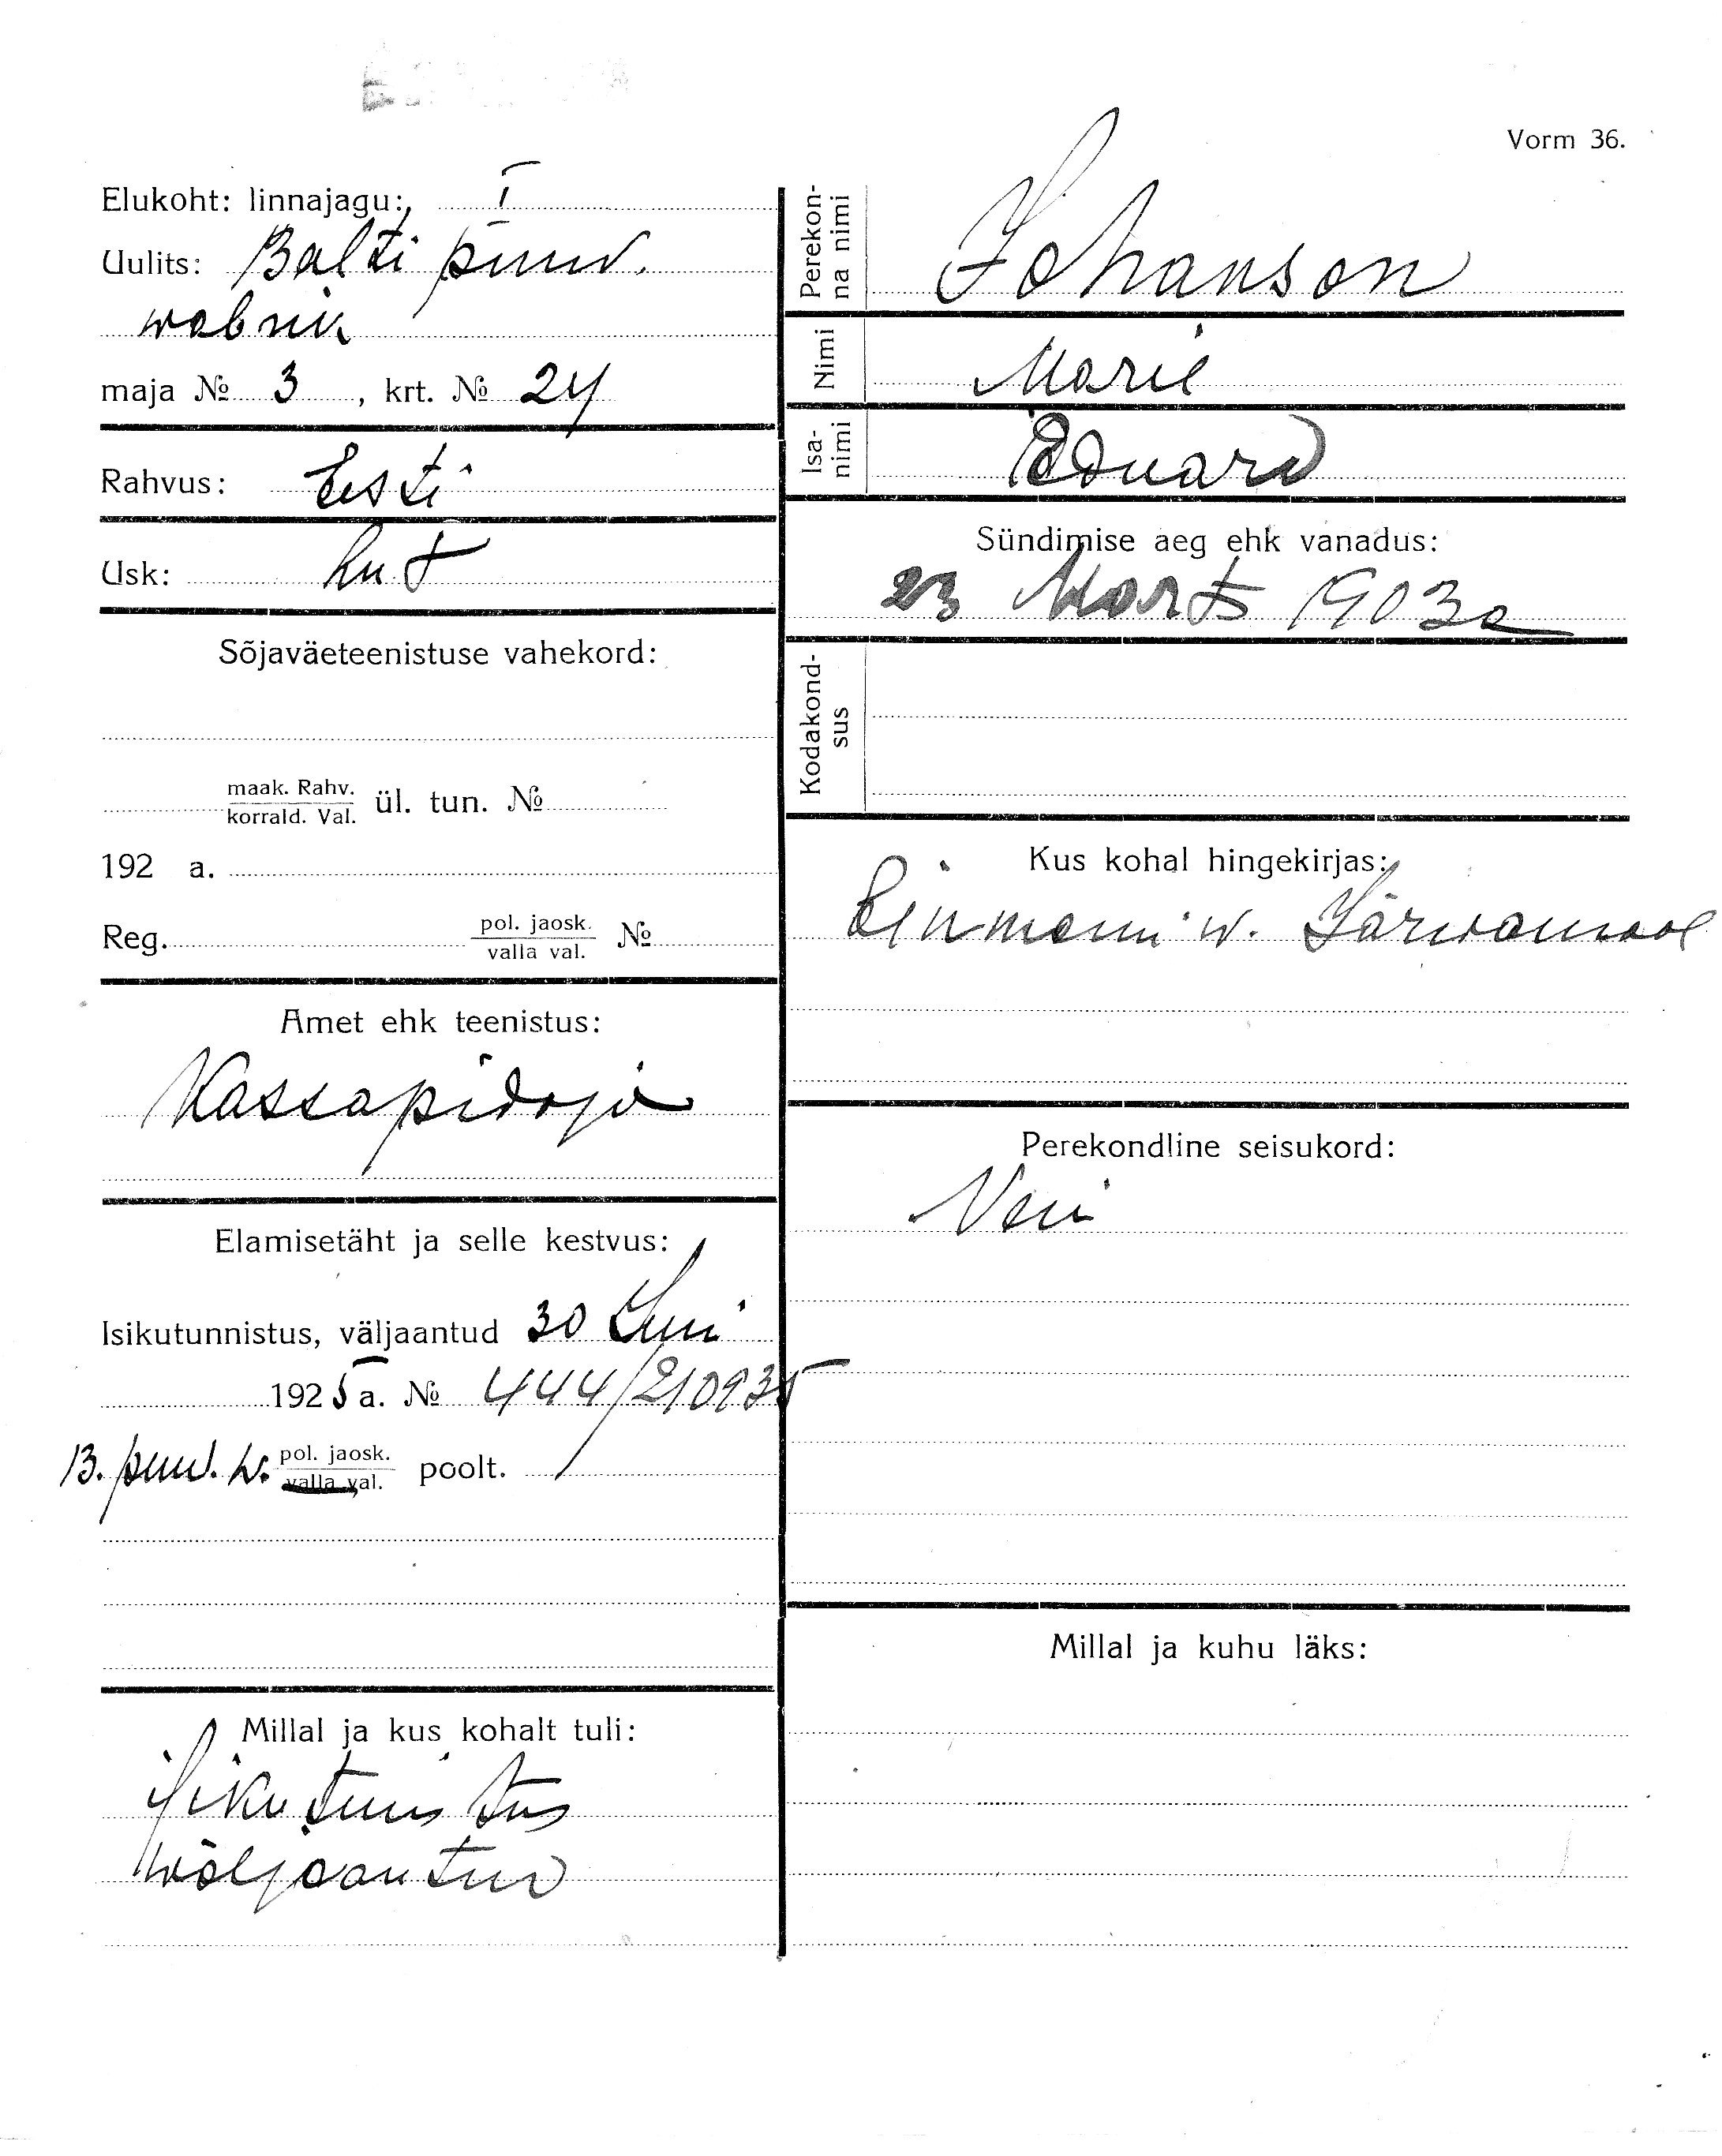 Vorm 36.
Elukoht: linnajagu: I
Uulits: Balti puuv.
wabrik
maja № 3, krt. № 24
Rahvus: Eesti
Usk: Lut
Sõjaväeteenistuse vahekord:
maak. Rahv.
korrald. Val. ül. tun. №
192 a.
Reg. pol. jaosk.
valla val. №
Amet ehk teenistus:
Kassapidaja
Elamisetäht ja selle kestvus:
Isikutunnistus, väljaantud 30 Juuni
1925 a. № 444/210935
B. puuv. w. pol. jaosk.
valla val. poolt.
Millal ja kus kohalt tuli:
isikutunistus
wäljaantud
Perekon-
na nimi
Johanson
Nimi
Marie
Isa-
nimi
Eduard
Sündimise aeg ehk vanadus:
23 Märts 1903 a
Kodakond-
sus
Kus kohal hingekirjas:
Einmanni w. Järwamaal
Perekondline seisukord:
Neiu
Millal ja kuhu läks: